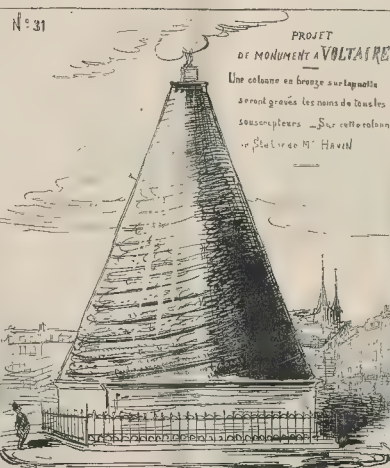 N° 31
PROJET
DE MONUMENT A VOLTAIRE
Une colonne en bronze sur laquelle
seront gravés les noms de tous les
souscripteurs _ Sur cette colonne
Statue de Mr HAVIN